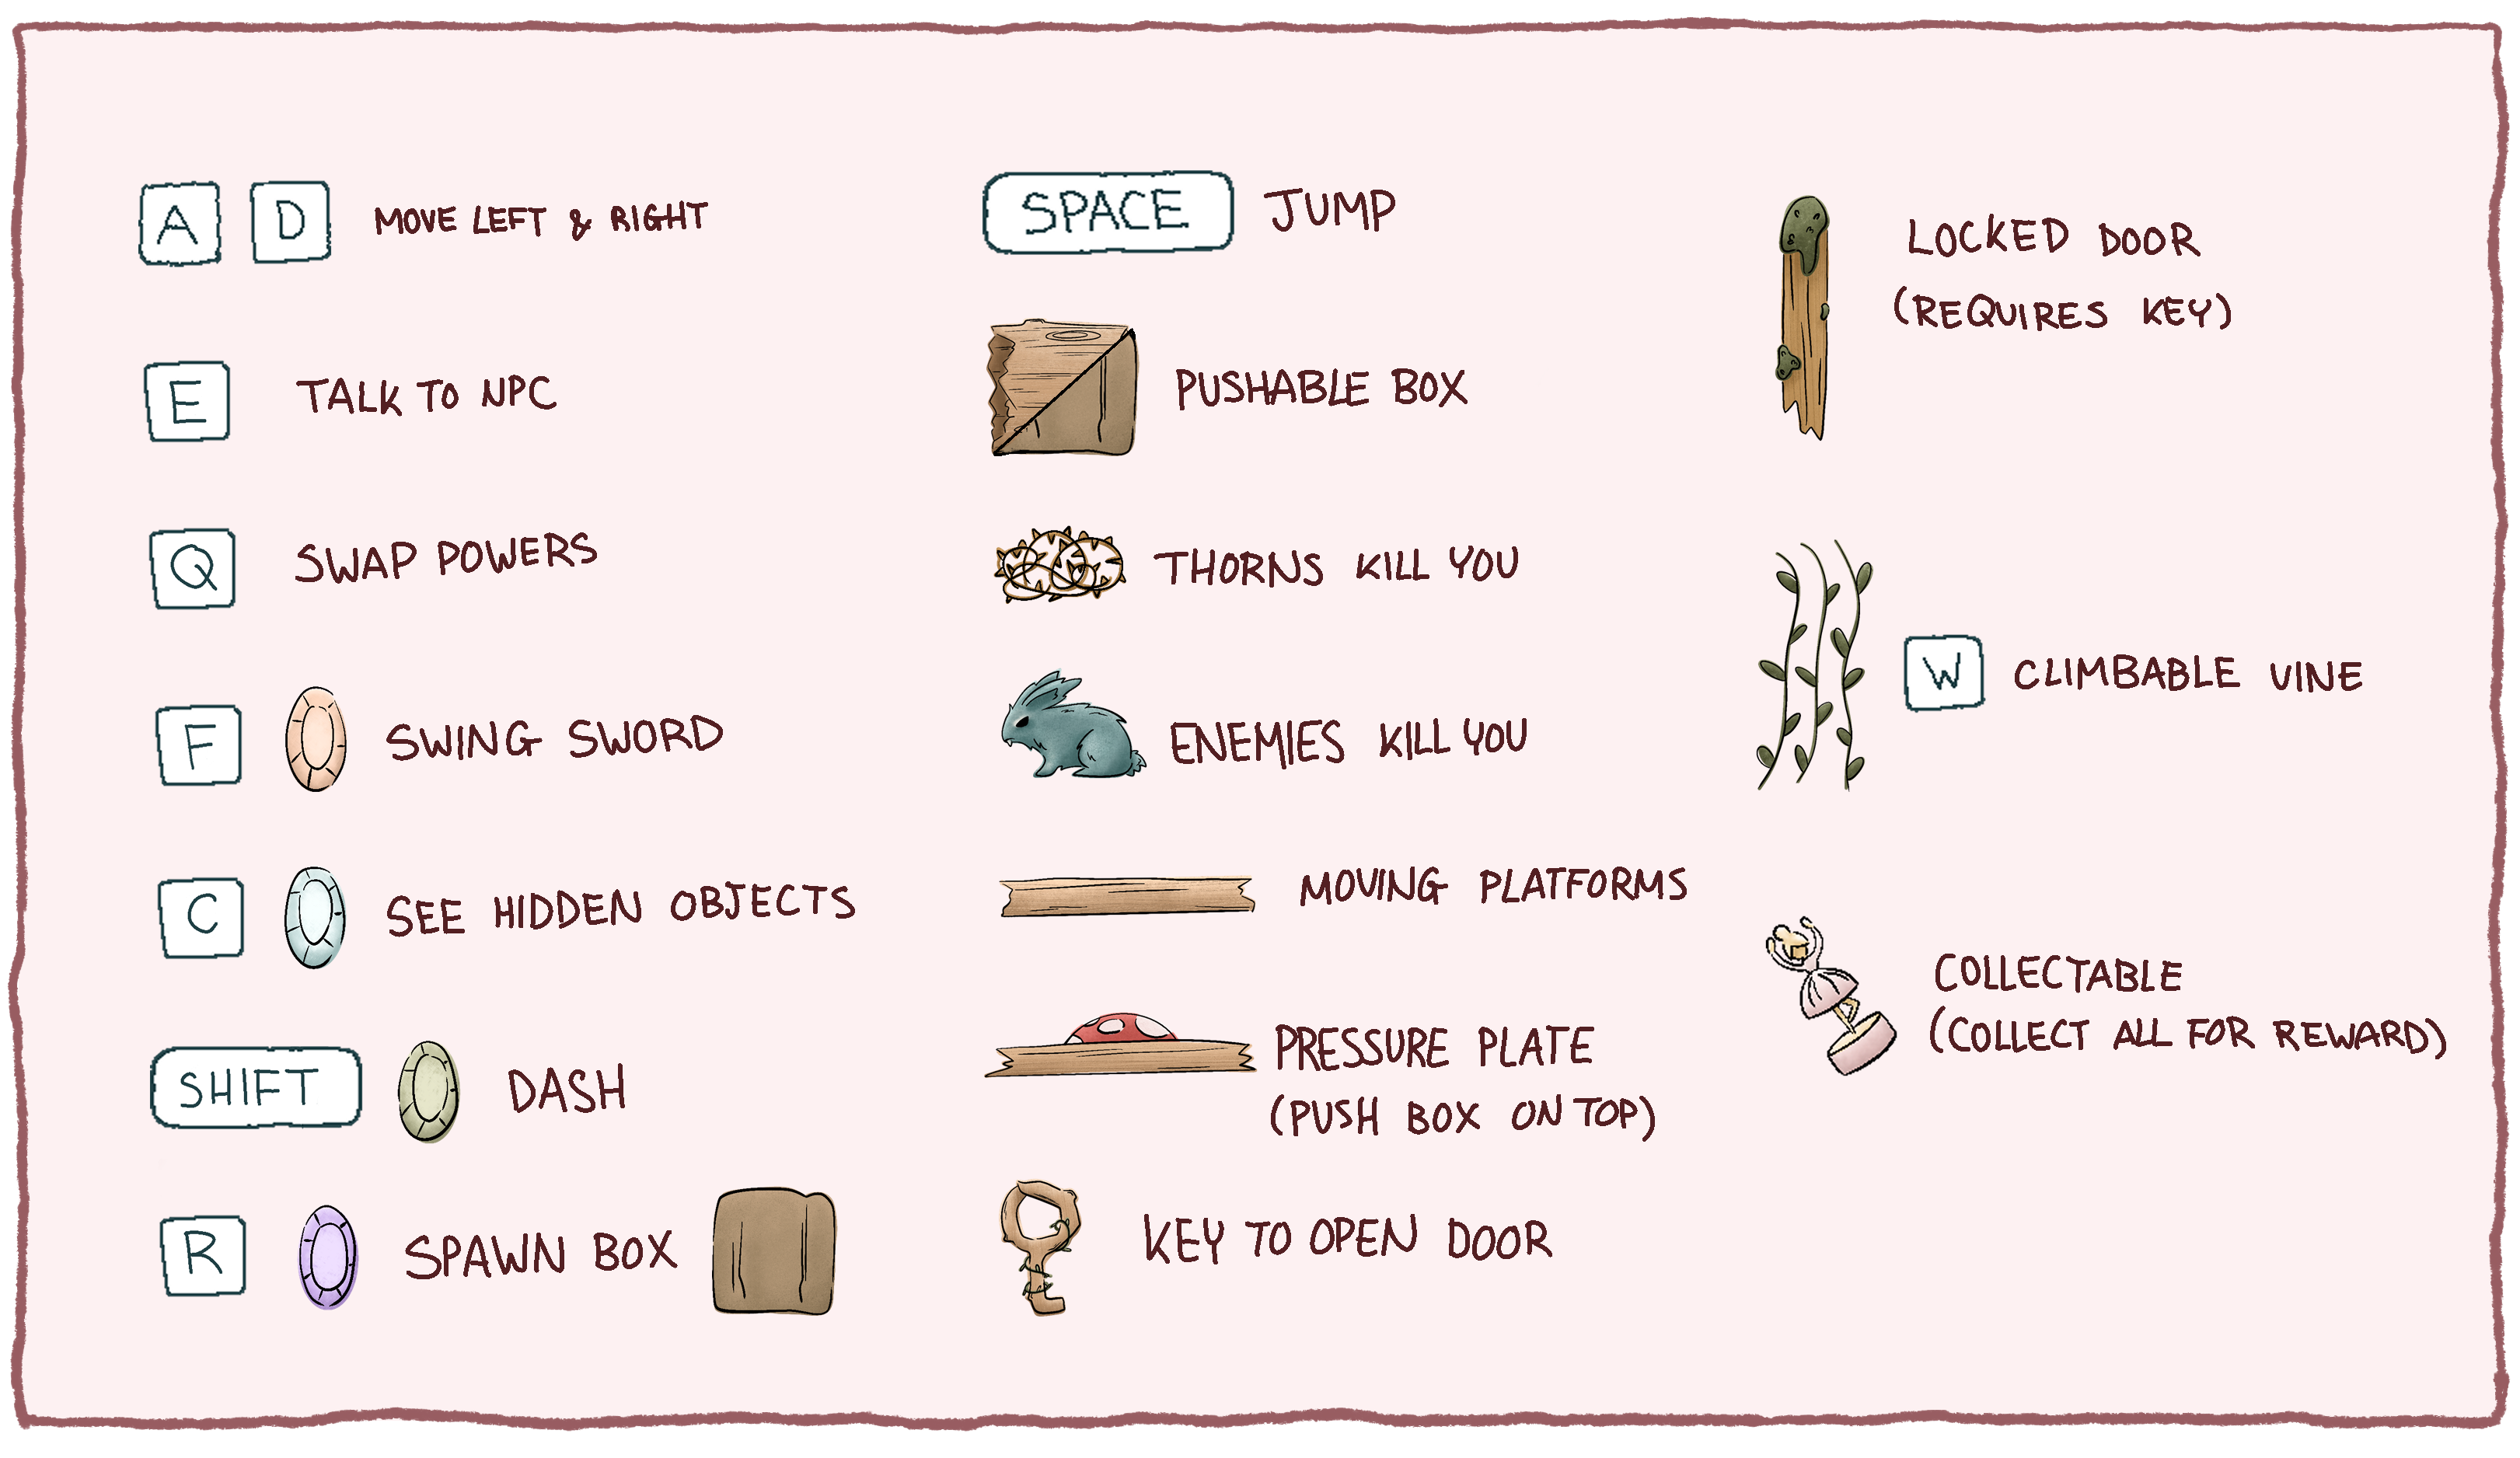 A D MOVE LEFT & RIGHT
E TALK TO NPC
Q SWAP POWERS
F SWING SWORD
C SEE HIDDEN OBJECTS
SHIFT DASH
R SPAWN BOX
SPACE JUMP
PUSHABLE BOX
THORNS KILL YOU
ENEMIES KILL YOU
MOVING PLATFORMS
PRESSURE PLATE
(PUSH BOX ON TOP)
KEY TO OPEN DOOR
LOCKED DOOR
(REQUIRES KEY)
W CLIMBABLE VINE
COLLECTABLE
(COLLECT ALL FOR REWARD)